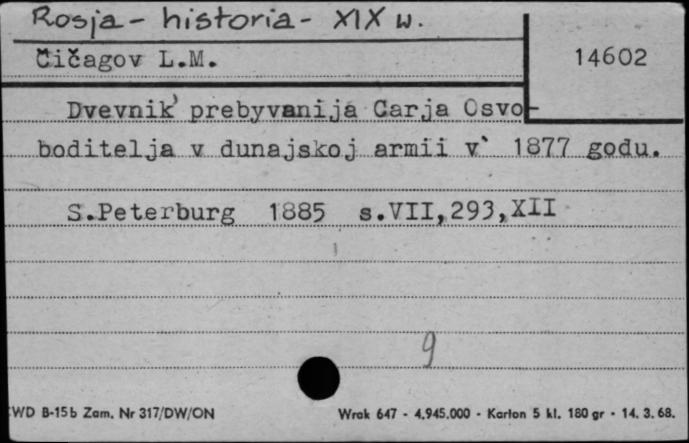 Rosja - historia - XIX w.
Čičagov L.M.
14602
Dvevnik’ prebyvanija Carja Osvo-
boditelja v dunajskoj armii v` 1877 godu.
S.Peterburg 1885 s.VII,293,XII
9
WD B-15b Zam. Nr 317/DW/ON
Wrak 647 - 4.945.000 - Karton 5 kl. 180 gr - 14. 3. 68.